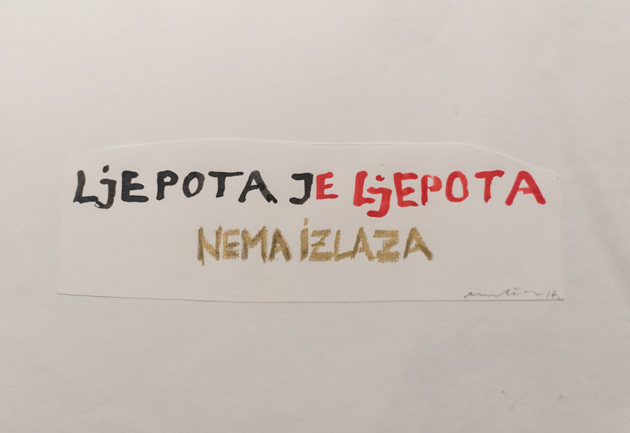 LjEPOTA JE LjEPOTA
NEMA iZLAZA